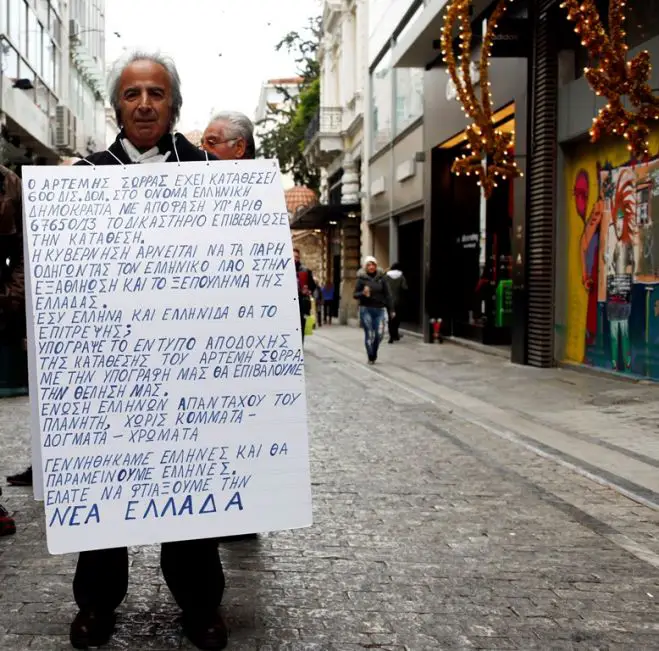 Ο ΑΡΤΕΜΗΣ ΣΩΡΡΑΣ ΕΧΕΙ ΚΑΤΑΘΕΣΕΙ
600 ΔΙΣ. ΔΟΛ. ΣΤΟ ΟΝΟΜΑ ΕΛΛΗΝΙΚΗ
ΔΗΜΟΚΡΑΤΙΑ ΜΕ ΑΠΟΦΑΣΗ ΥΠ' ΑΡΙΘ
67650/13 ΤΟ ΔΙΚΑΣΤΗΡΙΟ ΕΠΙΒΕΒΑΙΩΣΕ
ΤΗΝ ΚΑΤΑΘΕΣΗ.
Η ΚΥΒΕΡΝΗΣΗ ΑΡΝΕΙΤΑΙ ΝΑ ΤΑ ΠΑΡΗ
ΟΔΗΓΩΝΤΑΣ ΤΟΝ ΕΛΛΗΝΙΚΟ ΛΑΟ ΣΤΗΝ
ΕΞΑΘΛΙΩΣΗ ΚΑΙ ΤΟ ΞΕΠΟΥΛΗΜΑ ΤΗΣ
ΕΛΛΑΔΑΣ.
ΕΣΥ ΕΛΛΗΝΑ ΚΑΙ ΕΛΛΗΝΙΔΑ ΘΑ ΤΟ
ΕΠΙΤΡΕΨΗΣ;
ΥΠΟΓΡΑΨΕ ΤΟ ΕΝΤΥΠΟ ΑΠΟΔΟΧΗΣ
ΤΗΣ ΚΑΤΑΘΕΣΗΣ ΤΟΥ ΑΡΤΕΜΗ ΣΩΡΡΑ.
ΜΕ ΤΗΝ ΥΠΟΓΡΑΦΗ ΜΑΣ ΘΑ ΕΠΙΒΑΛΟΥΜΕ
ΤΗΝ ΘΕΛΗΣΗ ΜΑΣ.
ΕΝΩΣΗ ΕΛΛΗΝΩΝ ΑΠΑΝΤΑΧΟΥ ΤΟΥ
ΠΛΑΝΗΤΗ, ΧΩΡΙΣ ΚΟΜΜΑΤΑ -
ΔΟΓΜΑΤΑ - ΧΡΩΜΑΤΑ
ΓΕΝΝΗΘΗΚΑΜΕ ΕΛΛΗΝΕΣ ΚΑΙ ΘΑ
ΠΑΡΑΜΕΙΝΟΥΜΕ ΕΛΛΗΝΕΣ.
ΕΛΑΤΕ ΝΑ ΦΤΙΑΞΟΥΜΕ ΤΗΝ
ΝΕΑ ΕΛΛΑΔΑ
adidas